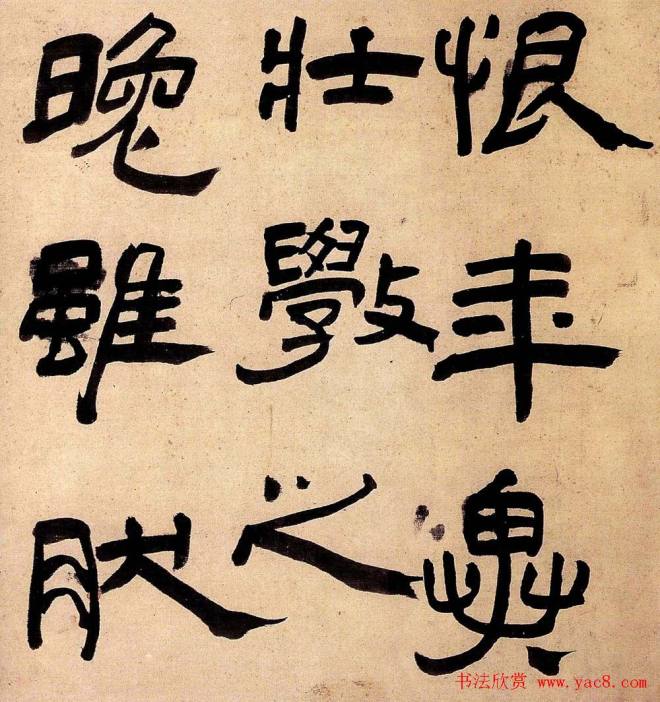 恨年與
壯斆之
晚雖肰
书法欣赏 www.yac8.com